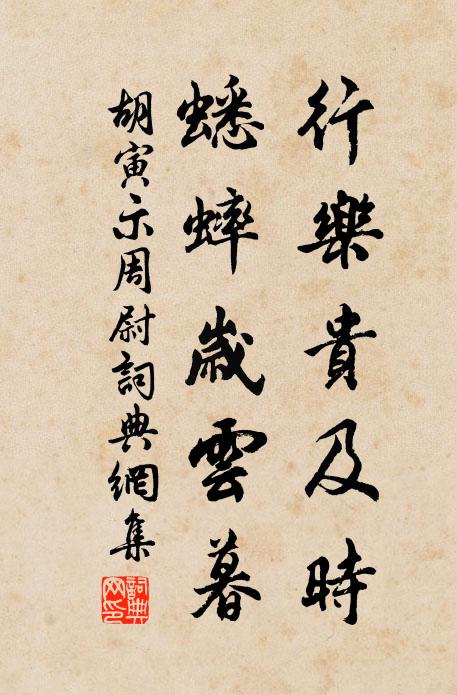 行樂貴及時
蟋蟀歲雲暮
胡寅示周尉詞典網集
詞典网印